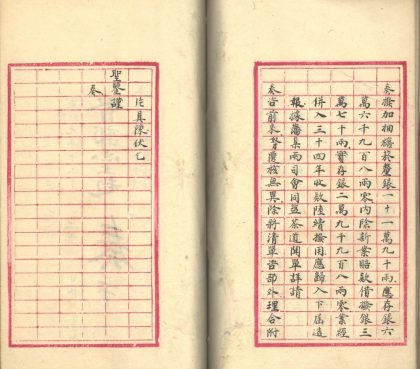 奏撥加抽糖菸釐銀一十一萬九千兩應存銀六
萬六千九百八兩零內除新案賠款借撥銀三
萬七千兩實存銀二萬九千九百八兩零業經
併入三十四年收款陸續撥用應歸入下屆造
報據藩臬兩司會同鹽茶道開單詳請
奏咨前來覆核無異除將清單咨部外理合附
片具陳伏乞
聖鑒謹
奏